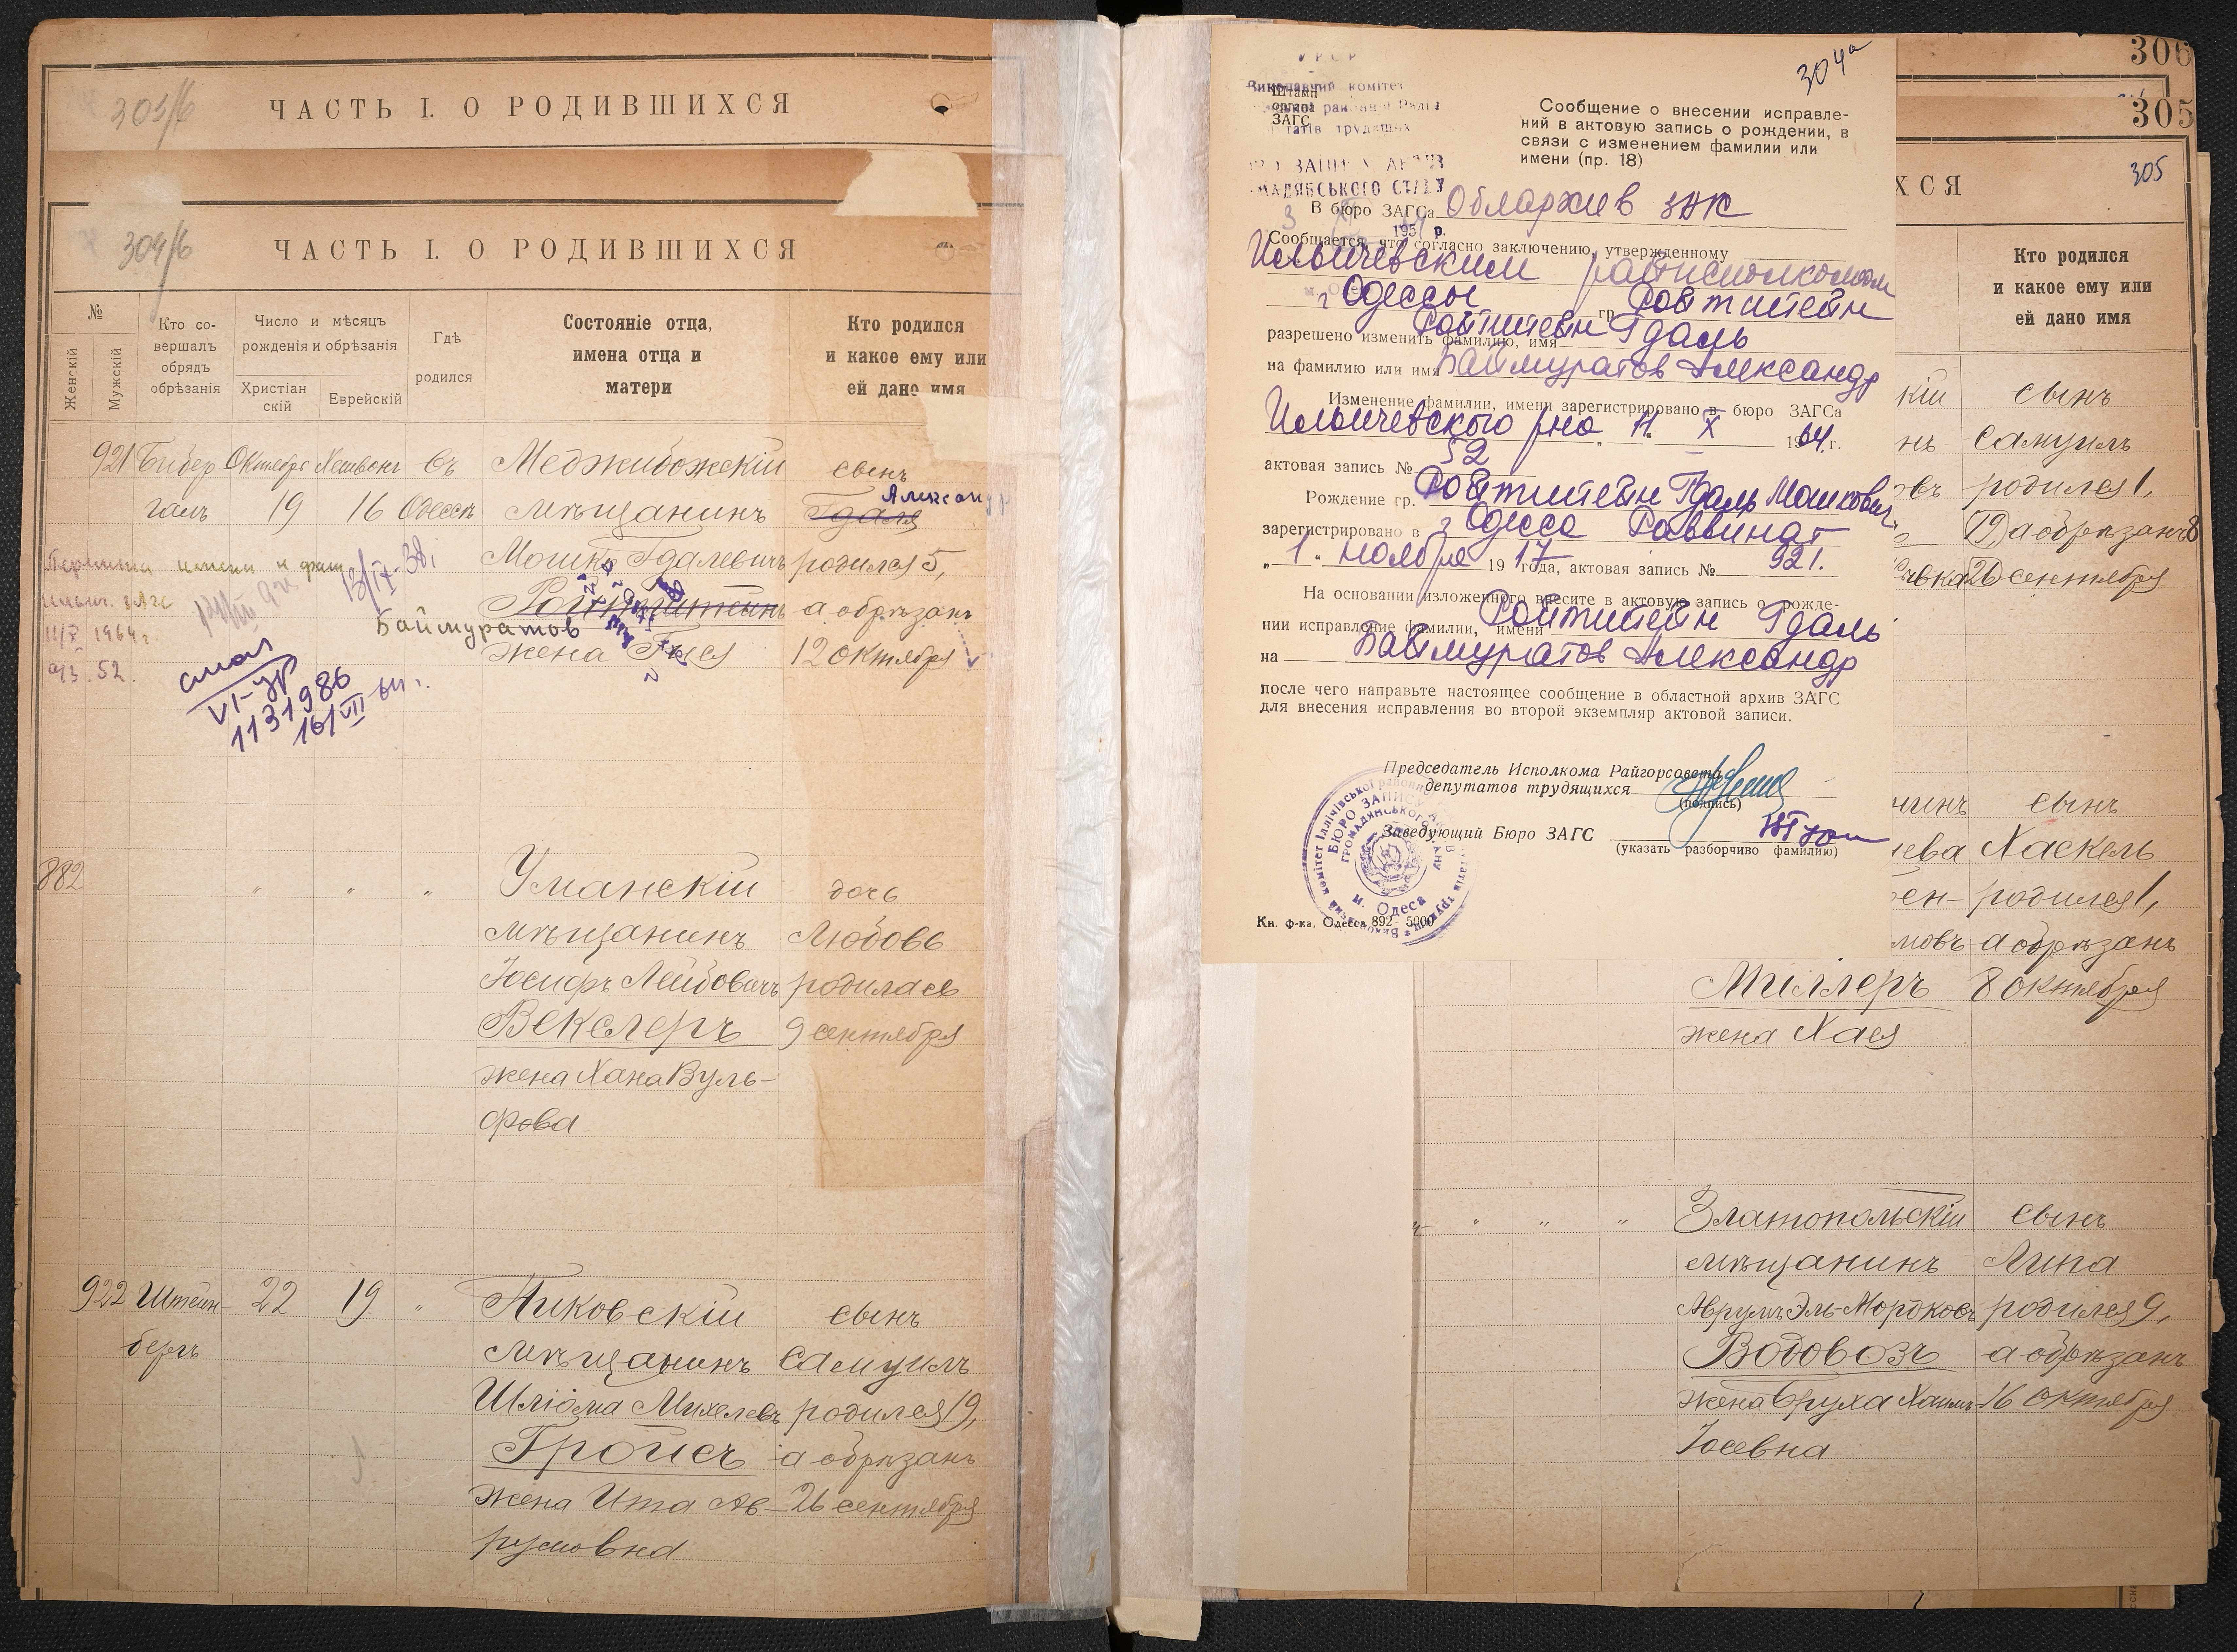 303/б
ЧАСТЬ I. О РОДИВШИХСЯ
304/б
ЧАСТЬ I. О РОДИВШИХСЯ
№
Женскій
Мужскій
Кто со-
вершалъ
обрядъ
обрѣзанія
Число и мѣсяцъ
рожденія и обрѣзанія
Христіан
скій
Еврейскій
Гдѣ
родился
Состояніе отца,
имена отца и
матери
Кто родился
и какое ему или
ей дано имя
921 Бибер Октября Хешвонъ въ Меджибожскій сынъ
галъ 19 16 Одессѣ мѣщанинъ Гдаля Александр
Мошко Гдалевичъ родился 5,
Ройтштейнъ а обрѣзанъ
Баймуратов
жена Гися 12 октября
Перемена имени и фам
Ильич. ЗАГС
11/X 1964 г.
№ 52.
13/IX-38.
VI-УР
1131986
16/VII-64 г.
882 " " " Уманскій дочь
мѣщанинъ Любовь
Іосифъ Лейбовичъ родилась
Векслеръ 9 сентября
жена Хана Вуль-
фова
922 Штейн- 22 19 " Пиковскій сынъ
бергъ мѣщанинъ Самуилъ
Шліома Михелевъ родился 19,
Гройсъ а обрѣзанъ
жена Ита Ав- 26 сентября
румовна
304а
УРСР
Виконавчий комітет
Штамп
органа
ЗАГС
Сообщение о внесении исправле-
ний в актовую запись о рождении, в
связи с изменением фамилии или
имени (пр. 18)
В бюро ЗАГСа Облархив ЗАК
195 р.
Сообщается, что согласно заключению, утвержденному
Ильичевским райисполкомом
г Одессы гр. Ройтштейн
разрешено изменить фамилию, имя Ройтштейн Гдаль
на фамилию или имя Баймуратов Александр
Изменение фамилии, имени зарегистрировано в бюро ЗАГСа
Ильичевского р-на „11" X 1964 г.
актовая запись № 52
Рождение гр. Ройтштейн Гдаль Мошкович
зарегистрировано в г Одесса Раввинат
„1" ноября 1917 года, актовая запись № 921.
На основании изложенного внесите в актовую запись о рожде-
нии исправление фамилии, имени Ройтштейн Гдаль
на Баймуратов Александр
после чего направьте настоящее сообщение в областной архив ЗАГС
для внесения исправления во второй экземпляр актовой записи.
Председатель Исполкома Райгорсовета
депутатов трудящихся
(подпись)
Заведующий Бюро ЗАГС
(указать разборчиво фамилию)
БЮРО ЗАПИСУ АКТІВ
ГРОМАДЯНСЬКОГО СТАНУ
м. Одеса
Кн. ф-ка. Одесса 892—5000
306
305
305
ХСЯ
Кто родился
и какое ему или
ей дано имя
кій сынъ
нъ Самуилъ
овъ родился 1,
(19) а обрѣзанъ 8
26 сентября
нинъ сынъ
Хаскель
ен- родился 1,
мовъ а обрѣзанъ
Миллеръ 8 октября
жена Хая
" " " Златопольскій сынъ
мѣщанинъ Липа
Аврумъ Эль-Мордковъ родился 9,
Водовозъ а обрѣзанъ
жена Бруха Хаимъ- 16 октября
Іосевна